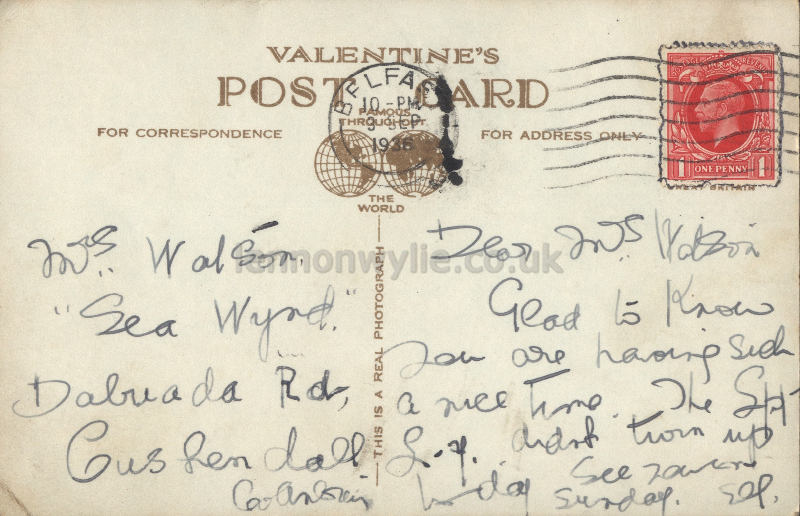 VALENTINE'S
POST CARD
FAMOUS
THROUGHOUT
THE
WORLD
FOR CORRESPONDENCE
FOR ADDRESS ONLY
BELFAS
10-PM
9 SEP
1936
1 ONE PENNY 1
lennonwylie.co.uk
THIS IS A REAL PHOTOGRAPH
Mrs Watson.
"Sea Wynd."
Rd,
Cushendall
Co Antrim
Dear Mrs Watson
Glad to Know
you are having such
a nice time. The
didnt turn up
to day See you on
Sunday.